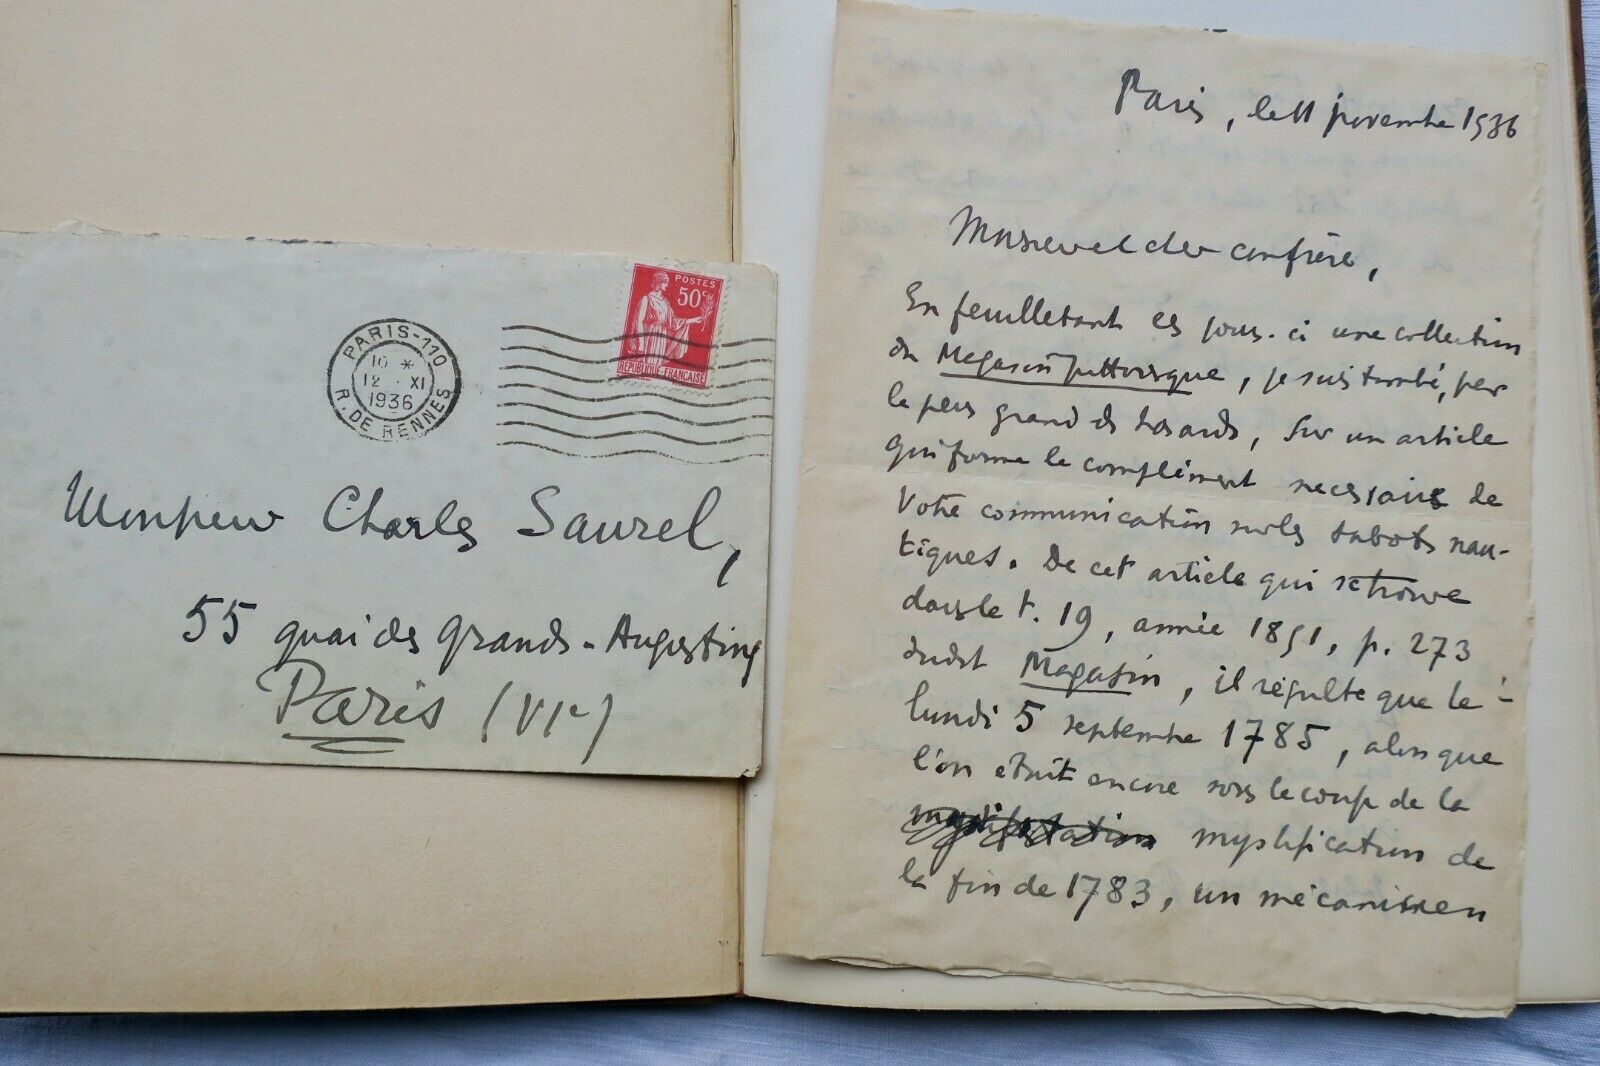 PARIS-110
10 *
12 · XI
1936
R. DE RENNES
POSTES
50c
REPUBLIQUE-FRANCAISE
Monsieur Charles Saurel,
55 quai des Grands-Augustins
Paris (VIe)
Paris, le 11 novembre 1936
Monsieur et cher confrère,
En feuilletant ces jours-ci une collection
du Magasin pittoresque, je suis tombé, par
le plus grand des hasards, sur un article
qui forme le complément nécessaire de
votre communication sur les sabots nau-
tiques. De cet article qui se trouve
dans le t. 19, année 1851, p. 273
dudit Magasin, il résulte que le
lundi 5 septembre 1785, alors que
l'on était encore sous le coup de la
mystification de
la fin de 1783, un mécanicien